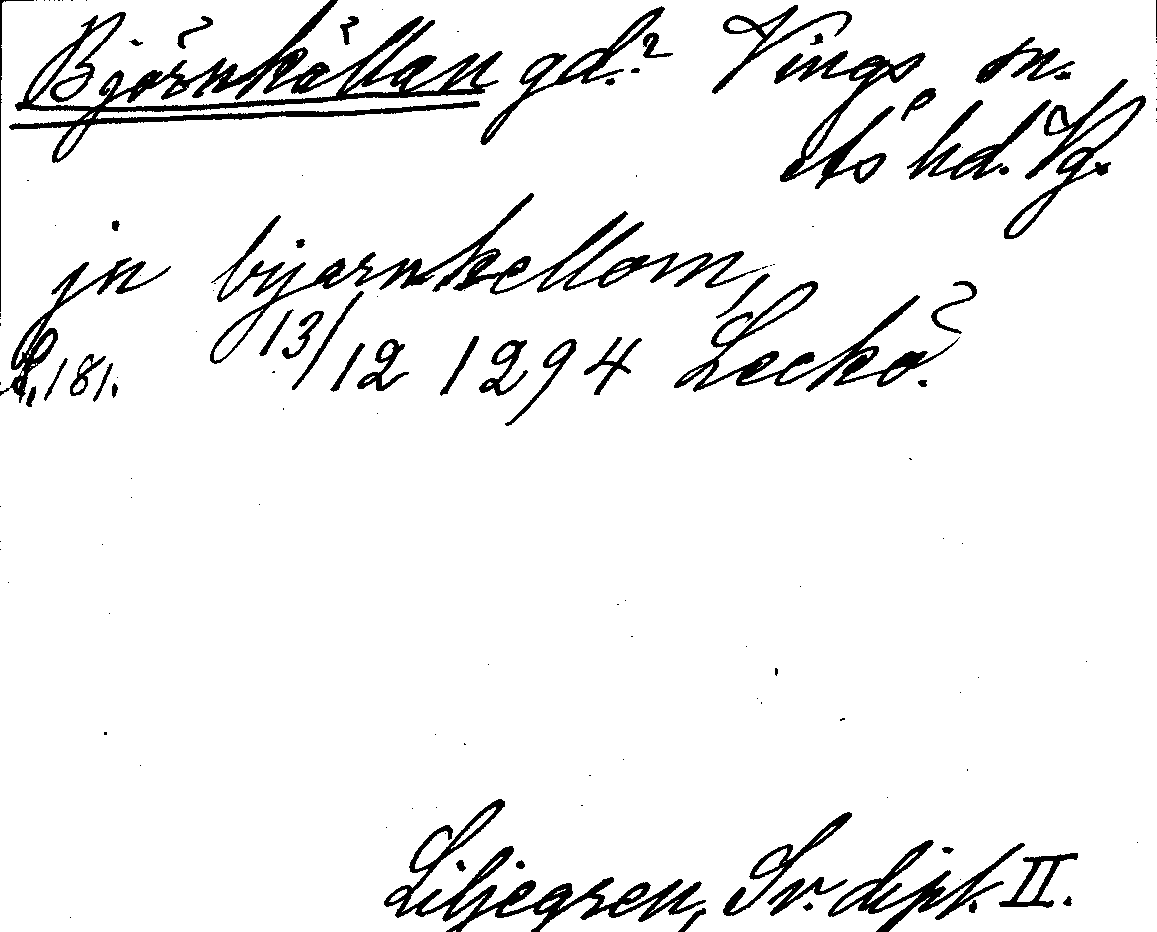 Björnkällan gd.? Vings sn.
Ås hd. Vg.
jn bijærnkellom,
S. 181. 13/12 1294 Leckö.
Liljegren, Sv. dipl. II.